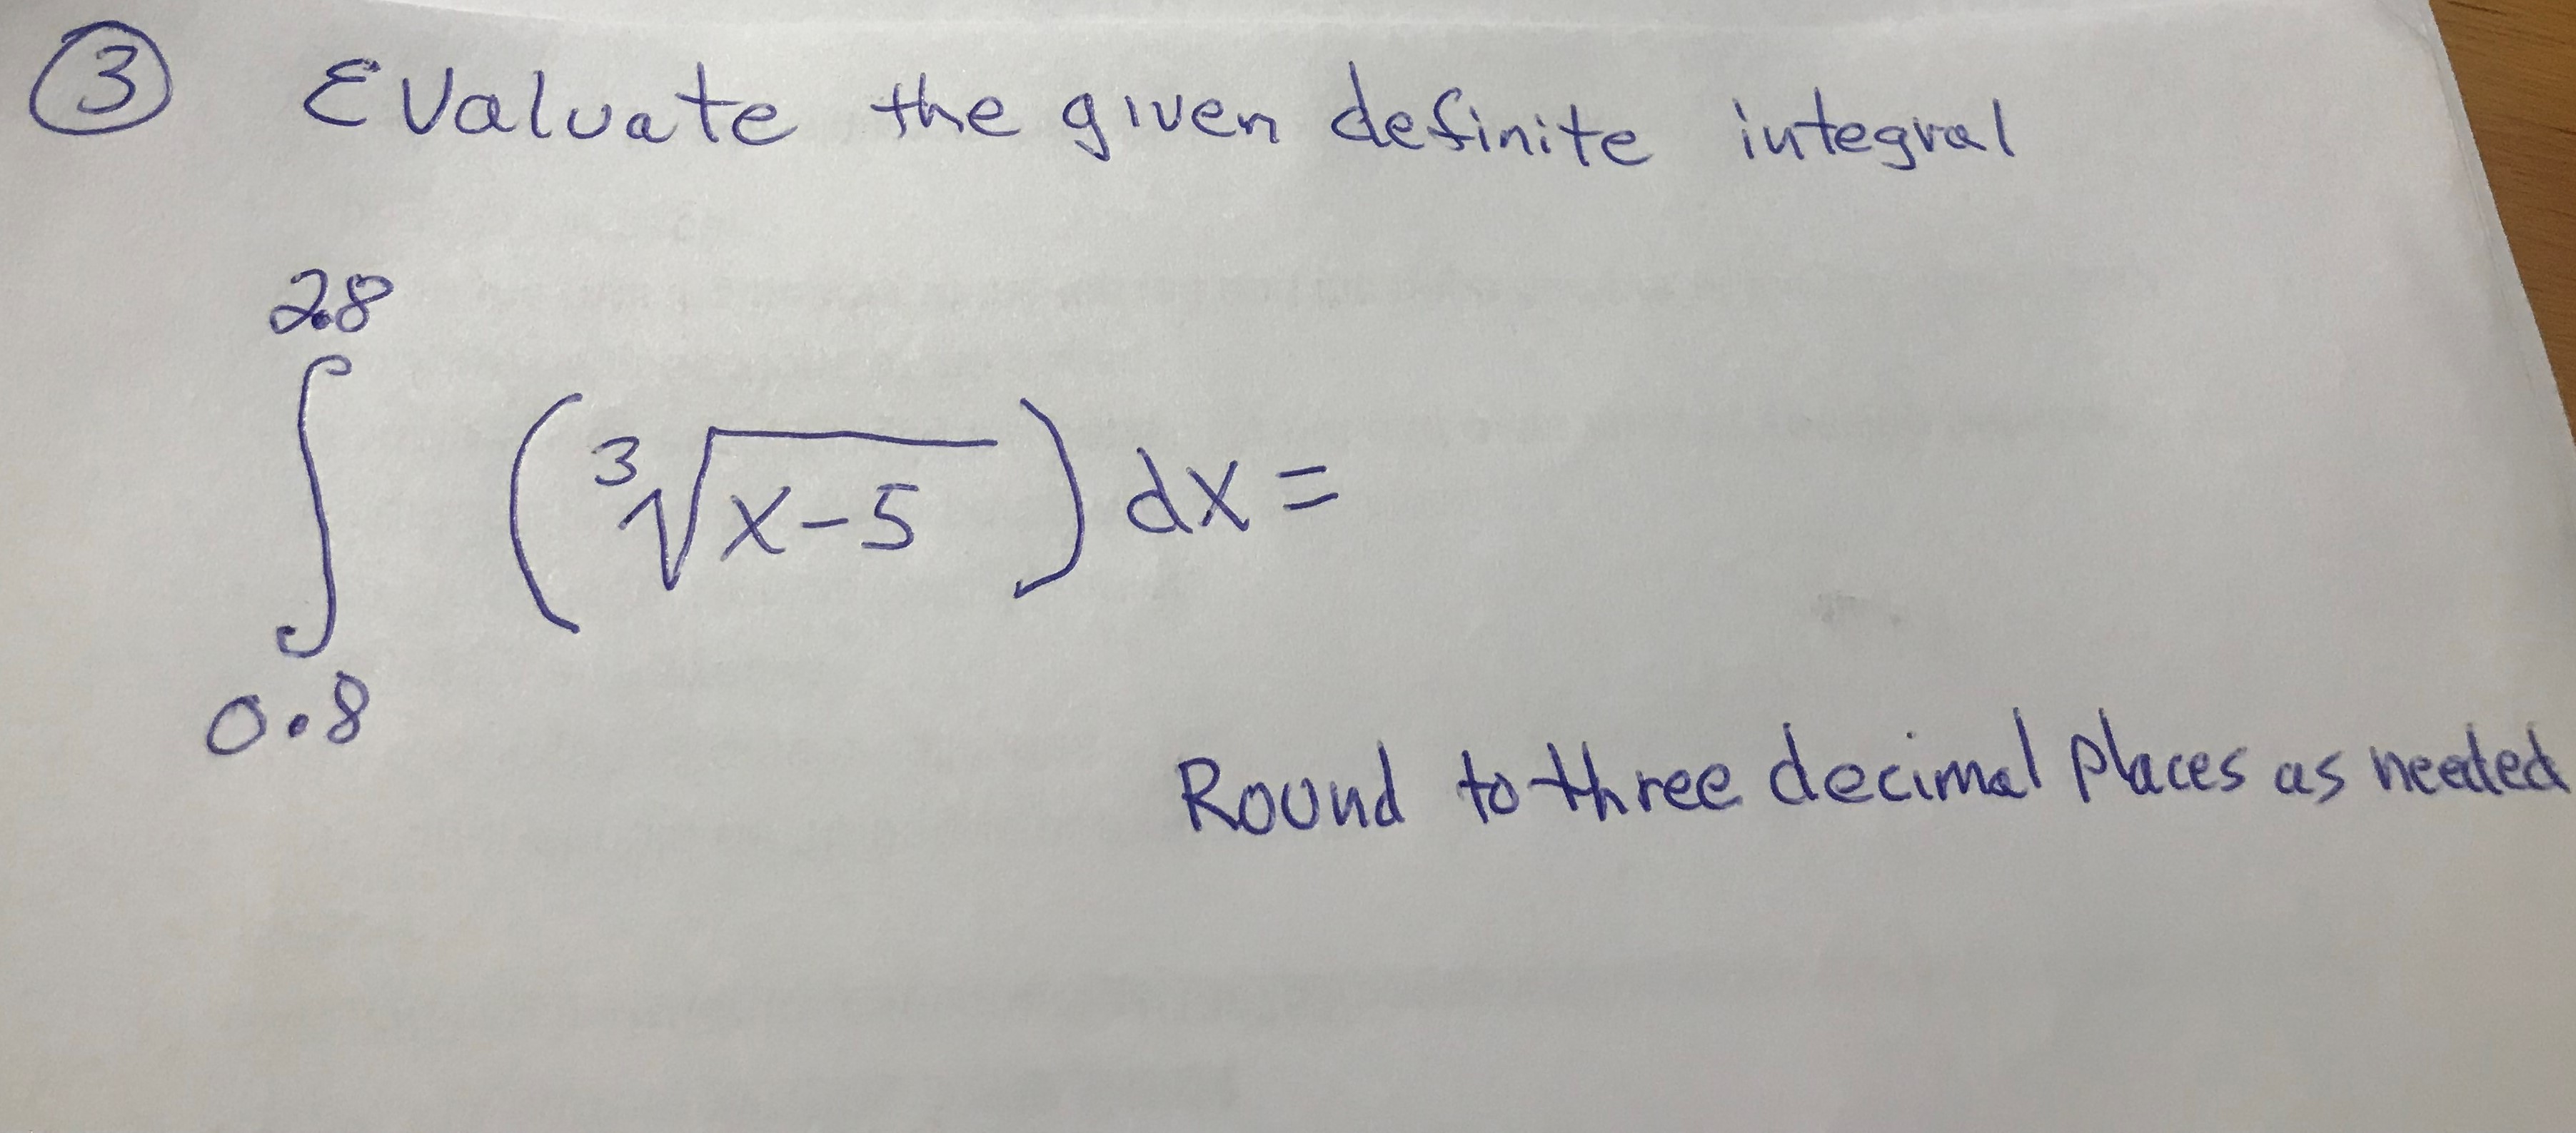 ③ Evaluate the given definite integral
2.8
∫ (∛x-5) dx =
0.8
Round to three decimal places as needed